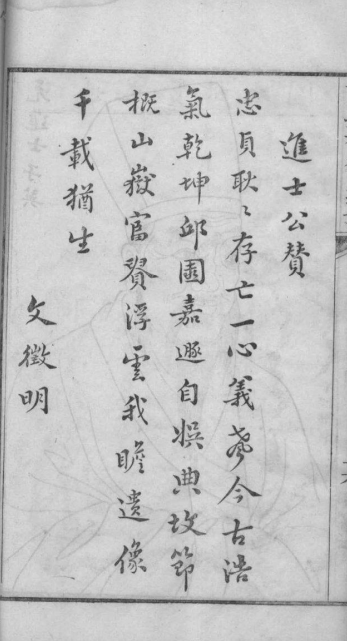 進士公贊
忠貞耿〻存亡一心義高今古浩
氣乾坤邱園嘉遯自娛典故節
概山嶽富貴浮雲我瞻遺像
千載猶生
文徵明